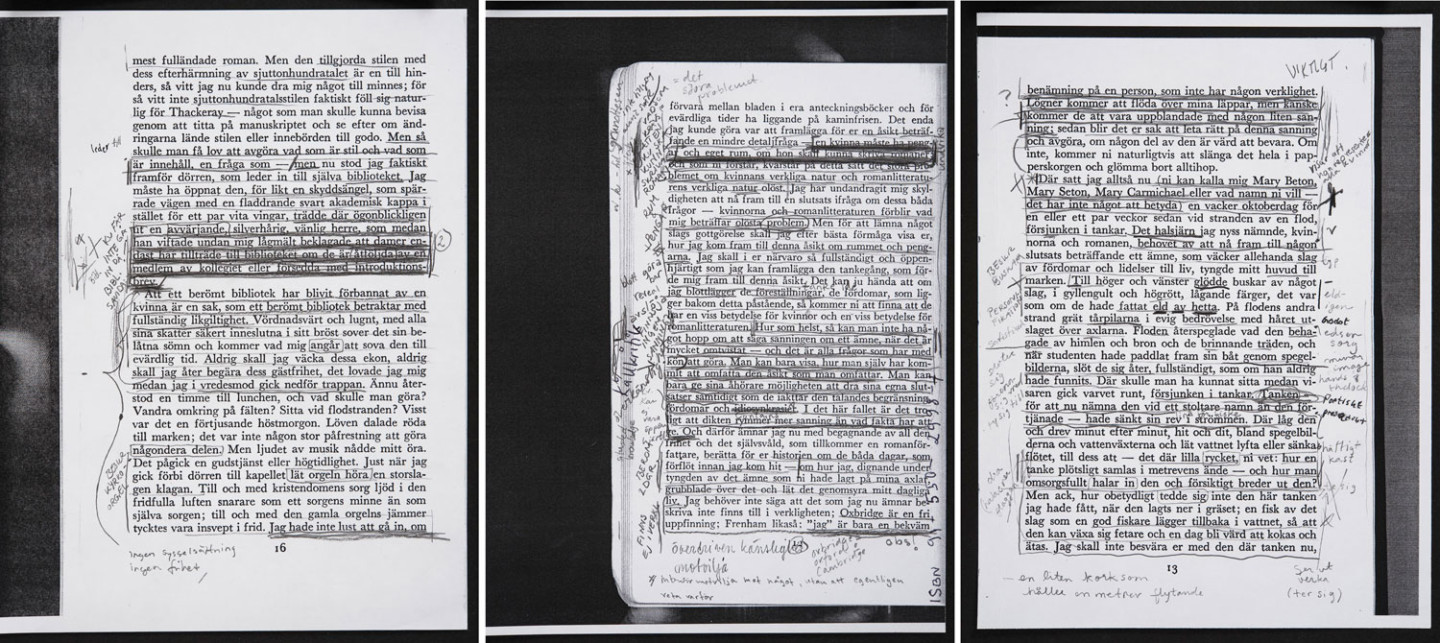 mest fulländade roman. Men den tillgjorda stilen med
dess efterhärmning av sjuttonhundratalet är en till hin-
ders, så vitt jag nu kunde dra mig något till minnes; för
så vitt inte sjuttonhundratalsstilen faktiskt föll sig natur-
lig för Thackeray — något som man skulle kunna bevisa
genom att titta på manuskriptet och se efter om änd-
ringarna lände stilen eller innebörden till godo. Men så
skulle man få lov att avgöra vad som är stil och vad som
är innehåll, en fråga som — men nu stod jag faktiskt
framför dörren, som leder in till själva biblioteket. Jag
måste ha öppnat den, för likt en skyddsängel, som spär-
rade vägen med en fladdrande svart akademisk kappa i
stället för ett par vita vingar, trädde där ögonblickligen
ut en avvärjande, silverhårig, vänlig herre, som medan
han viftade undan mig lågmält beklagade att damer en-
dast har tillträde till biblioteket om de är åtföljda av en
medlem av kollegiet eller försedda med introduktions-
brev.
Att ett berömt bibliotek har blivit förbannat av en
kvinna är en sak, som ett berömt bibliotek betraktar med
fullständig likgiltighet. Vördnadsvärt och lugnt, med alla
sina skatter säkert inneslutna i sitt bröst sover det sin be-
låtna sömn och kommer vad mig angår att sova den till
evärdlig tid. Aldrig skall jag väcka dessa ekon, aldrig
skall jag åter begära dess gästfrihet, det lovade jag mig
medan jag i vredesmod gick nedför trappan. Ännu åter-
stod en timme till lunchen, och vad skulle man göra?
Vandra omkring på fälten? Sitta vid flodstranden? Visst
var det en förtjusande höstmorgon. Löven dalade röda
till marken; det var inte någon stor påfrestning att göra
någondera delen. Men ljudet av musik nådde mitt öra.
Det pågick en gudstjänst eller högtidlighet. Just när jag
gick förbi dörren till kapellet lät orgeln höra en storsla-
gen klagan. Till och med kristendomens sorg ljöd i den
fridfulla luften snarare som ett sorgens minne än som
själva sorgen; till och med den gamla orgelns jämmer
tycktes vara insvept i frid. Jag hade inte lust att gå in, om
16
leder till
2
ingen sysselsättning
ingen frihet
= det
stora
problemet
förvara mellan bladen i era anteckningsböcker och för
evärdliga tider ha liggande på kaminfrisen. Det enda
jag kunde göra var att framlägga för er en åsikt beträf-
fande en mindre detaljfråga — en kvinna måste ha peng-
ar och eget rum, om hon skall kunna skriva romaner
och som ni förstår, kvarstår på detta sätt det stora pro-
blemet om kvinnans verkliga natur och romanlitteratu-
rens verkliga natur olöst. Jag har undandragit mig skyl-
digheten att nå fram till en slutsats ifråga om dessa båda
frågor — kvinnorna och romanlitteraturen förblir vad
mig beträffar olösta problem. Men för att lämna något
slags gottgörelse skall jag efter bästa förmåga visa er,
hur jag kom fram till denna åsikt om rummet och peng-
arna. Jag skall i er närvaro så fullständigt och öppen-
hjärtigt som jag kan framlägga den tankegång, som för-
de mig fram till denna åsikt. Det kan ju hända att om
jag blottlägger de föreställningar, de fördomar, som lig-
ger bakom detta påstående, så kommer ni att finna att de
har en viss betydelse för kvinnor och en viss betydelse för
romanlitteraturen. Hur som helst, så kan man inte ha nå-
got hopp om att säga sanningen om ett ämne, när det är
mycket omtvistat — och det är alla frågor som har med
kön att göra. Man kan bara visa, hur man själv har kom-
mit att omfatta den åsikt som man omfattar. Man kan
bara ge sina åhörare möjligheten att dra sina egna slut-
satser samtidigt som de iakttar den talandes begränsning,
fördomar och idiosynkrasier. I det här fallet är det tro-
ligt att dikten rymmer mer sanning än vad fakta har att
ge. Och därför ämnar jag nu med begagnande av all den
frihet och det självsvåld, som tillkommer en romanför-
fattare, berätta för er historien om de båda dagar, som
förflöt innan jag kom hit — om hur jag, dignande under
tyngden av det ämne som ni hade lagt på mina axlar
grubblade över det och lät det genomsyra mitt dagliga
liv. Jag behöver inte säga att det som jag nu ämnar be-
skriva inte finns till i verkligheten; Oxbridge är en fri
uppfinning; Frenham likaså; "jag" är bara en bekväm
överdriven känslighet
motvilja
oxbridge =
oxford
Cambridge
obs!
veta varför
ISBN
VIKTIGT.
?
benämning på en person, som inte har någon verklighet.
Lögner kommer att flöda över mina läppar, men kanske
kommer de att vara uppblandade med någon liten san-
ning; sedan blir det er sak att leta rätt på denna sanning
och avgöra, om någon del av den är värd att bevara. Om
inte, kommer ni naturligtvis att slänga det hela i pap-
perskorgen och glömma bort alltihop.
Där satt jag alltså nu (ni kan kalla mig Mary Beton,
Mary Seton, Mary Carmichael eller vad namn ni vill —
det har inte något att betyda) en vacker oktoberdag för
en eller ett par veckor sedan vid stranden av en flod,
försjunken i tankar. Det halsjärn jag nyss nämnde, kvin-
norna och romanen, behovet av att nå fram till någon
slutsats beträffande ett ämne, som väcker allehanda slag
av fördomar och lidelser till liv, tyngde mitt huvud till
marken. Till höger och vänster glödde buskar av något
slag, i gyllengult och högrött, lågande färger, det var
som om de hade fattat eld av hetta. På flodens andra
strand grät tårpilarna i evig bedrövelse med håret ut-
slaget över axlarna. Floden återspeglade vad den beha-
gade av himlen och bron och de brinnande träden, och
när studenten hade paddlat fram sin båt genom spegel-
bilderna, slöt de sig åter, fullständigt, som om han aldrig
hade funnits. Där skulle man ha kunnat sitta medan vi-
saren gick varvet runt, försjunken i tankar. Tanken —
för att nu nämna den vid ett stoltare namn än den för-
tjänade — hade sänkt sin rev i strömmen. Där låg den
och drev minut efter minut, hit och dit, bland spegelbil-
derna och vattenväxterna och lät vattnet lyfta eller sänka
flötet, till dess att — det där lilla rycket, ni vet: hur en
tanke plötsligt samlas i metrevens ände — och hur man
omsorgsfullt halar in den och försiktigt breder ut den?
Men ack, hur obetydligt tedde sig inte den här tanken
jag hade fått, när den lagts ner i gräset; en fisk av det
slag som en god fiskare lägger tillbaka i vattnet, så att
den kan växa sig fetare och en dag bli värd att kokas och
ätas. Jag skall inte besvära er med den där tanken nu,
13
häftigt
kast
— en liten kork som
håller en metrev flytande
Ser ut
verka
(ter sig)